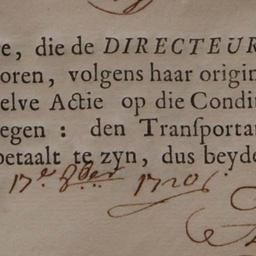 re, die de DIRECTEUR
oren, volgens haar origin
elve Actie op die Condi
egen : den Tranſporta
betaalt te zyn, dus beyde
17.e 8ber 1720